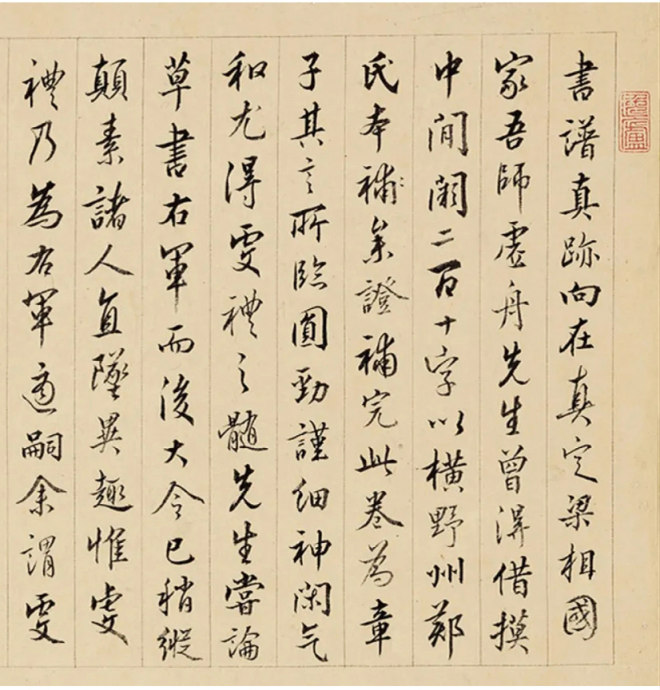 書譜真跡向在真定梁相國
家吾師虛舟先生曾得借摸
中間闕二百十字以橫野州鄭
氏本補叅證補完此卷為章
子其之所臨圓勁謹細神閑气
和尤得虔禮之髓先生嘗論
草書右軍而後大令已稍縱
顛素諸人直墜異趣惟虔
禮乃為右軍適嗣余謂虔